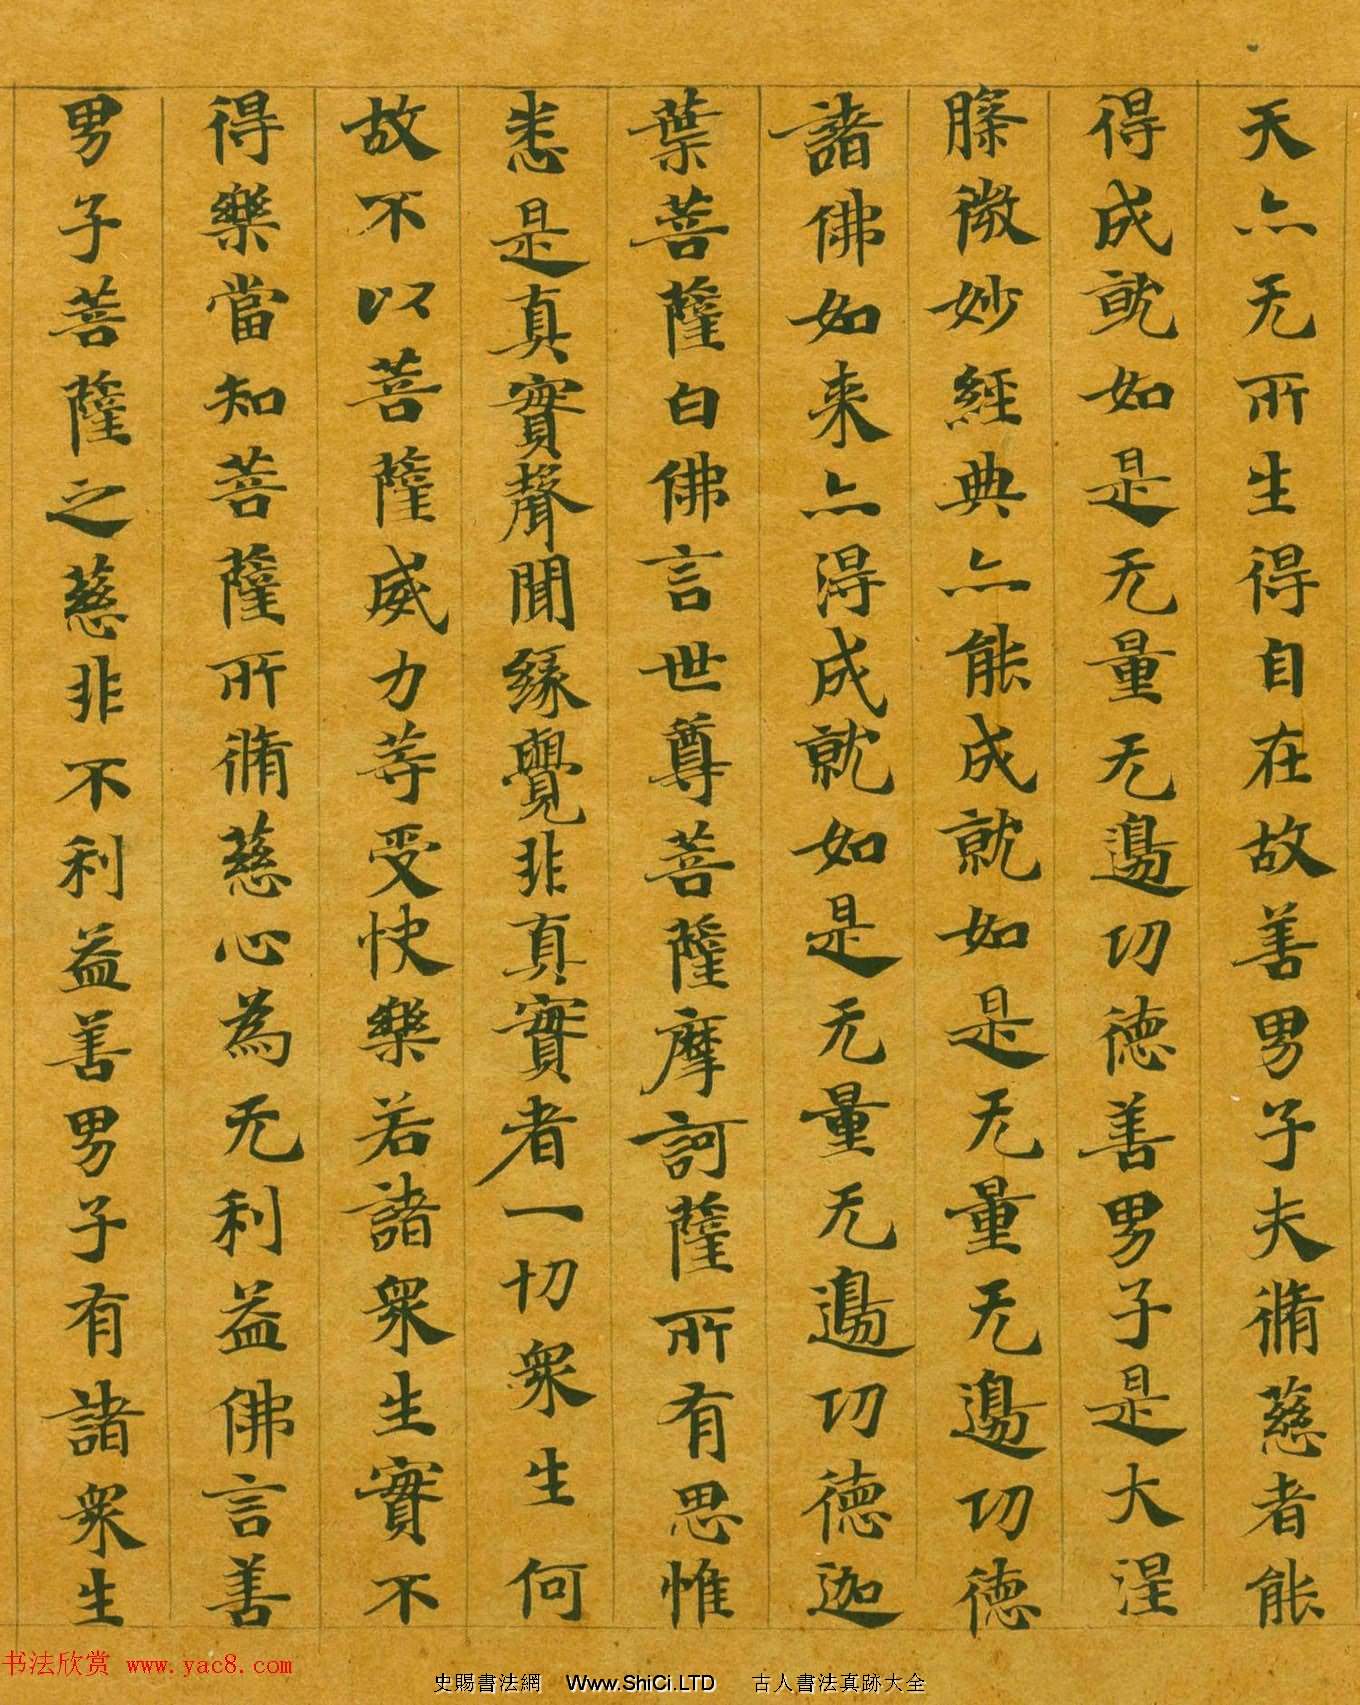 天亦无所生得自在故善男子夫脩慈者能
得成就如是无量无邊功德善男子是大涅
槃微妙經典亦能成就如是无量无邊功德
諸佛如来亦得成就如是无量无邊功德迦
葉菩薩白佛言世尊菩薩摩訶薩所有思惟
悉是真實聲聞緣覺非真實者一切衆生何
故不以菩薩威力等受快樂若諸衆生實不
得樂當知菩薩所脩慈心為无利益佛言善
男子菩薩之慈非不利益善男子有諸衆生
书法欣赏 www.yac8.com
史賜書法網 Www.ShiCi.LTD 古人書法真跡大全